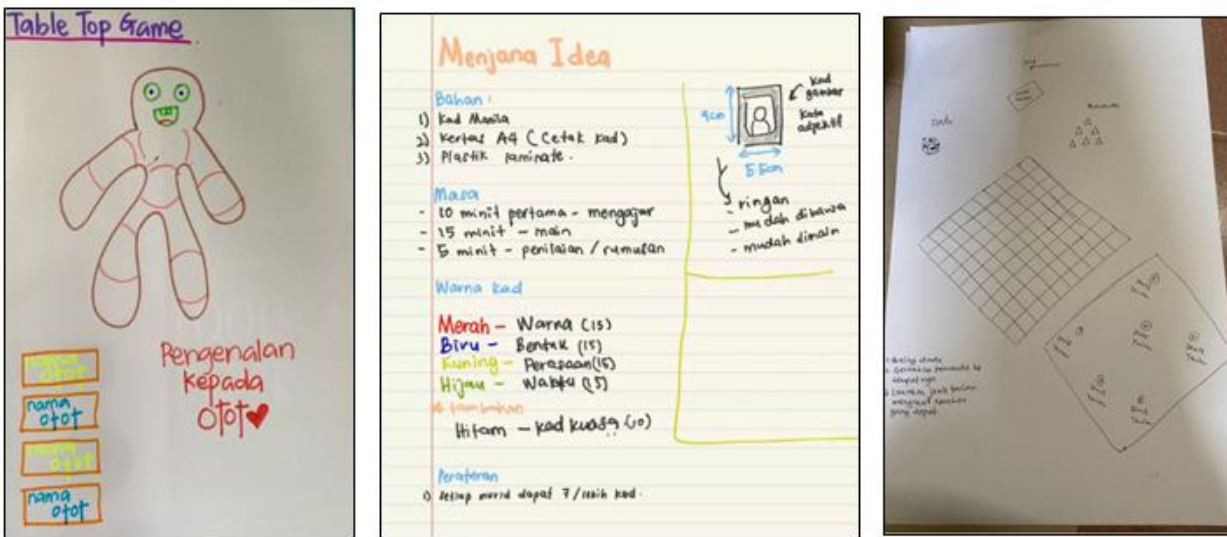 Table Top Game
Pengenalan
kepada
otot
nama
otot
nama
otot
nama
otot
nama
otot
Menjana Idea
Bahan :
1) Kad Manila
2) Kertas A4 (Cetak kad)
3) Plastik laminate.
Masa
- 10 minit pertama - mengajar
- 15 minit - main
- 5 minit - penilaian / rumusan
Warna kad
Merah - Warna (15)
Biru - Bentuk (15)
Kuning - Perasaan (15)
Hijau - Waktu (15)
tambahan
Hitam - kad kuasa (10)
Peraturan
1) Setiap murid dapat 7 / lebih kad.
kad
gambar
kata
adjektif
9cm
5.5cm
- ringan
- mudah dibawa
- mudah dimain
Dadu